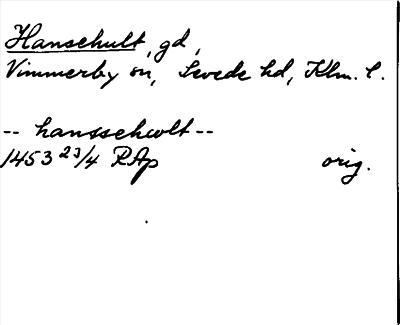 Hanschult, gd,
Vimmerby sn, Sevede hd, Klm. l.
-- hansschwlt --
1453 23/4 RAp orig.